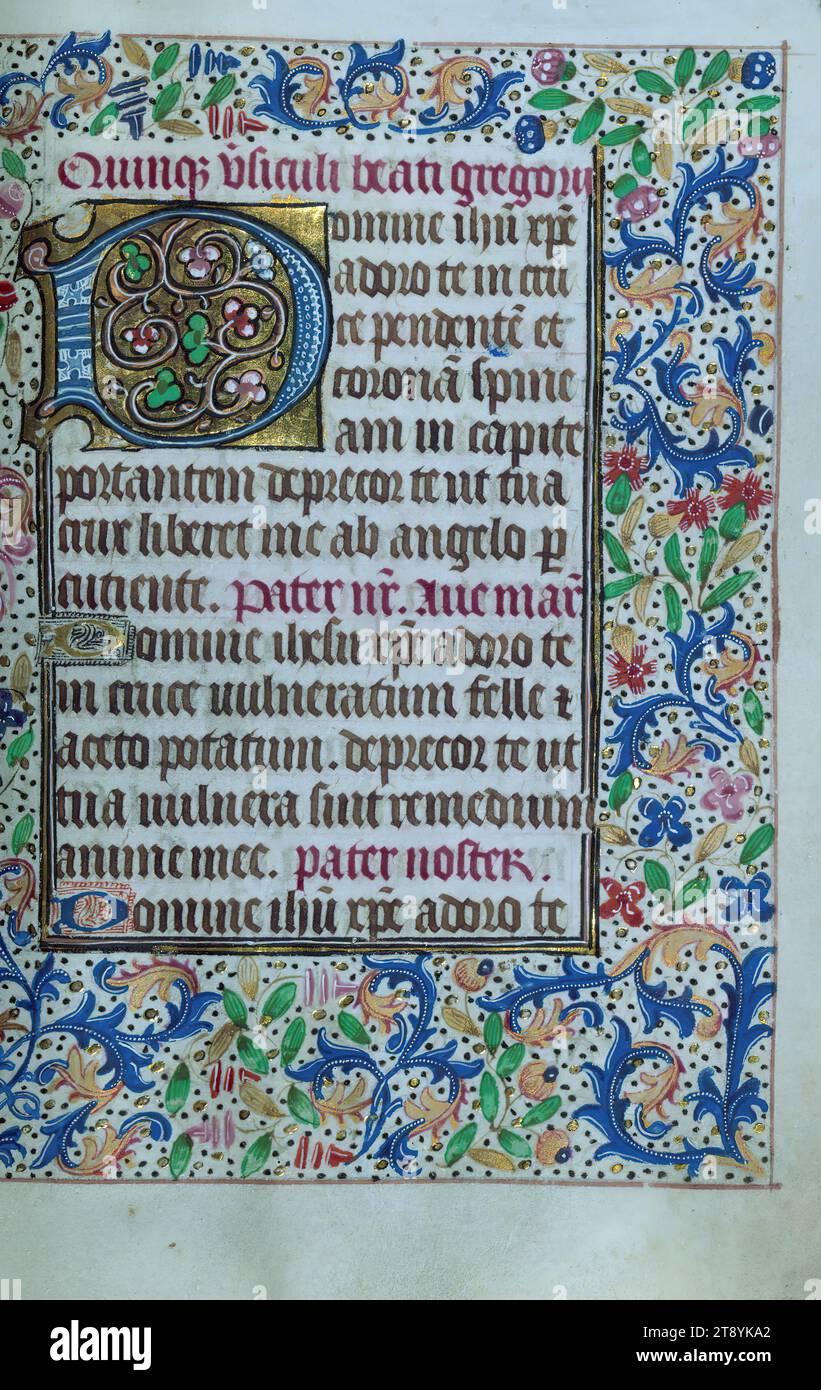 Quinq̄ v̄siculi beati gregorii
Domine ihū xp̄e
adoro te in cru
ce pendentē et
coronā spine
am in capite
portantem deprecor te ut tua
crux liberet me ab angelo p̄
cutiente. pater nr̄. Aue mar̄
Domine ihesu xp̄e adoro te
in cruce uulneratum felle ⁊
aceto potatum. deprecor te ut
tua uulnera sint remedium
anime mee. pater noster.
Domine ihū xp̄e adoro te
alamy
a
a
alamy
Image ID: T8YKA2
www.alamy.com